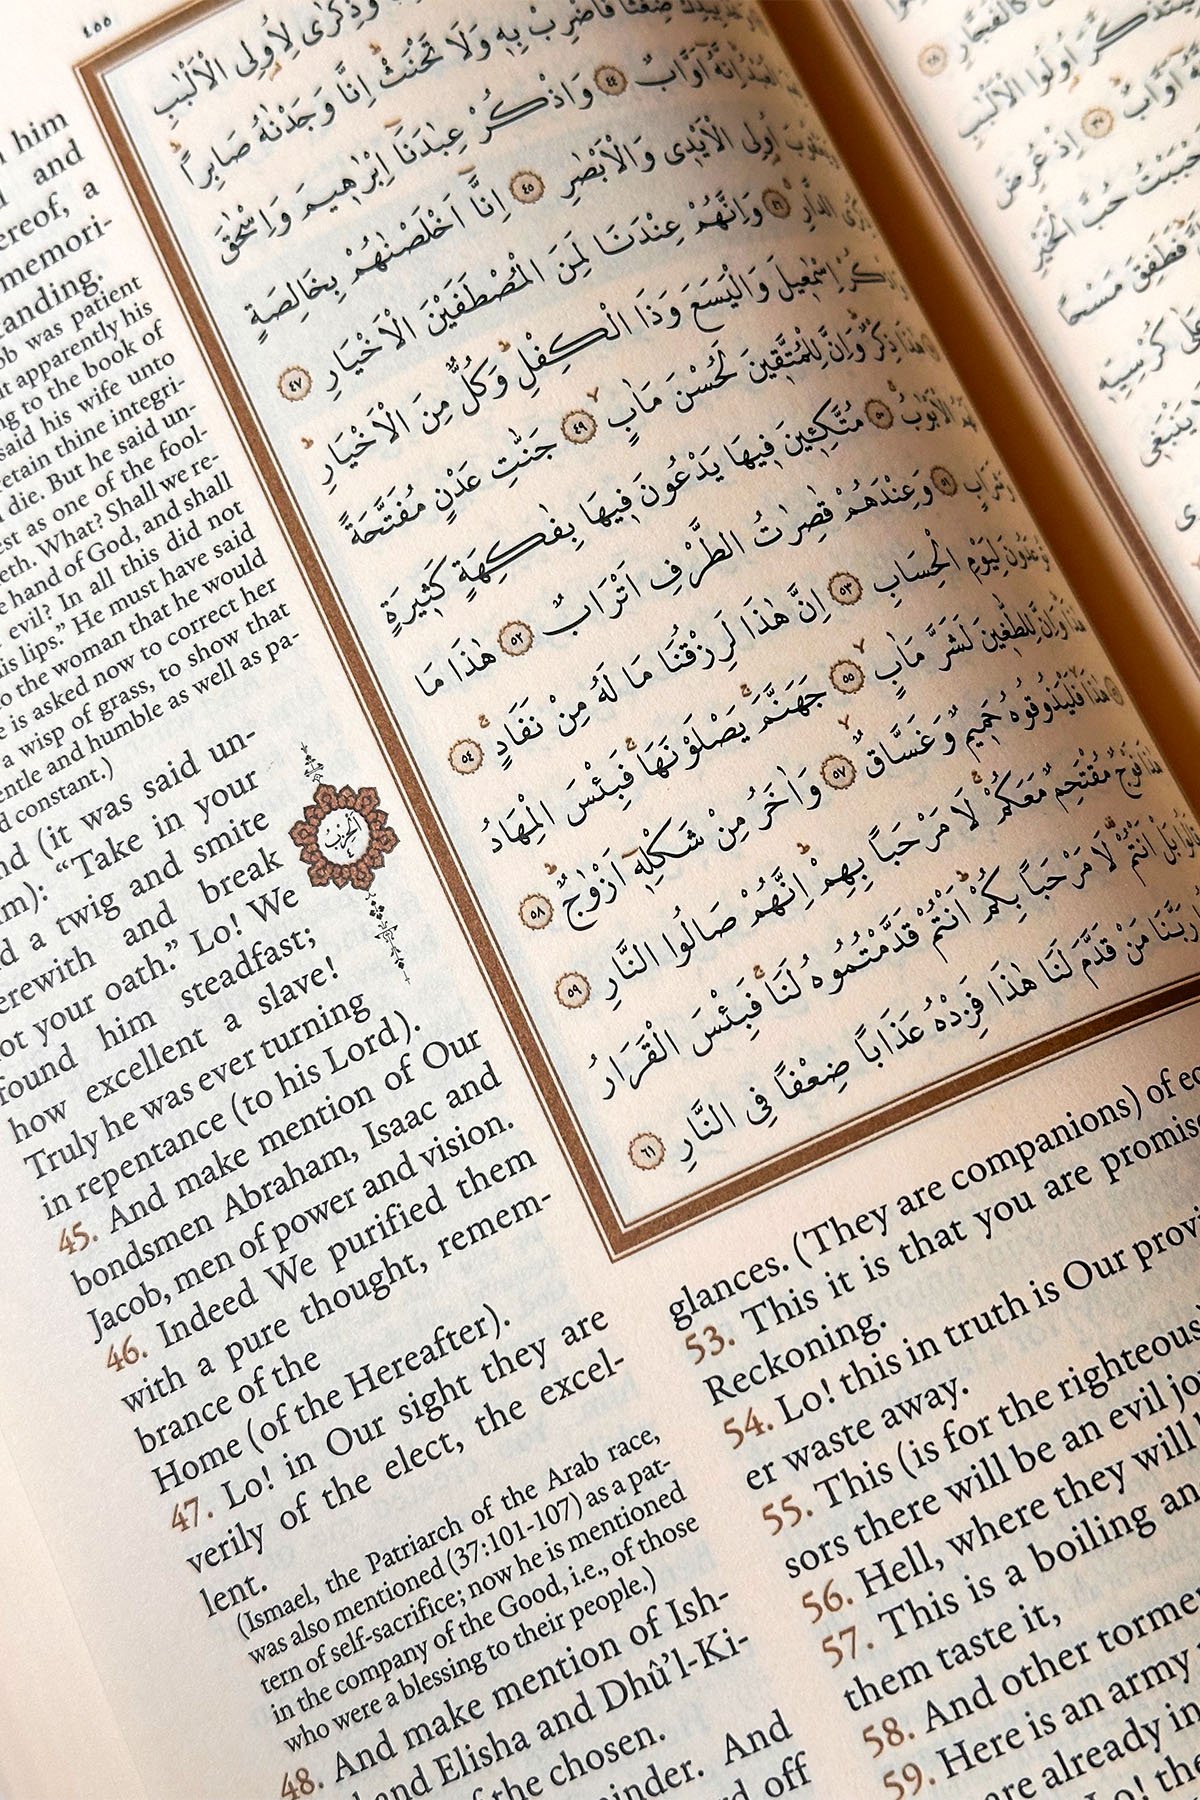 ٤٥٥
وَذِكْرٰى لِاُولِى الْاَلْبَابِ
ضِغْثًا فَاضْرِبْ بِهٖ وَلَا تَحْنَثْ اِنَّا وَجَدْنَاهُ صَابِرًا
الْعَبْدُ اِنَّهُٓ اَوَّابٌ ٤٤ وَاذْكُرْ عِبَادَنَٓا اِبْرٰهٖيمَ وَاِسْحٰقَ
وَيَعْقُوبَ اُولِى الْاَيْدٖى وَالْاَبْصَارِ ٤٥ اِنَّٓا اَخْلَصْنَاهُمْ بِخَالِصَةٍ
ذِكْرَى الدَّارِ ٤٦ وَاِنَّهُمْ عِنْدَنَا لَمِنَ الْمُصْطَفَيْنَ الْاَخْيَارِ ٤٧
وَاذْكُرْ اِسْمٰعٖيلَ وَالْيَسَعَ وَذَا الْكِفْلِ وَكُلٌّ مِنَ الْاَخْيَارِ
هٰذَا ذِكْرٌ وَاِنَّ لِلْمُتَّقٖينَ لَحُسْنَ مَاٰبٍ ٤٩ جَنَّاتِ عَدْنٍ مُفَتَّحَةً
لَهُمُ الْاَبْوَابُ ٥٠ مُتَّكِـٖٔينَ فٖيهَا يَدْعُونَ فٖيهَا بِفَاكِهَةٍ كَثٖيرَةٍ
وَشَرَابٍ ٥١ وَعِنْدَهُمْ قَاصِرَاتُ الطَّرْفِ اَتْرَابٌ ٥٢ هٰذَا مَا
تُوعَدُونَ لِيَوْمِ الْحِسَابِ ٥٣ اِنَّ هٰذَا لَرِزْقُنَا مَا لَهُ مِنْ نَفَادٍ ٥٤
هٰذَا وَاِنَّ لِلطَّاغٖينَ لَشَرَّ مَاٰبٍ ٥٥ جَهَنَّمَ يَصْلَوْنَهَا فَبِئْسَ الْمِهَادُ
٥٦ هٰذَا فَلْيَذُوقُوهُ حَمٖيمٌ وَغَسَّاقٌ ٥٧ وَاٰخَرُ مِنْ شَكْلِهٖٓ اَزْوَاجٌ ٥٨
هٰذَا فَوْجٌ مُقْتَحِمٌ مَعَكُمْ لَا مَرْحَبًا بِهِمْ اِنَّهُمْ صَالُوا النَّارِ ٥٩
قَالُوا بَلْ اَنْتُمْ لَا مَرْحَبًا بِكُمْ اَنْتُمْ قَدَّمْتُمُوهُ لَنَا فَبِئْسَ الْقَرَارُ
رَبَّنَا مَنْ قَدَّمَ لَنَا هٰذَا فَزِدْهُ عَذَابًا ضِعْفًا فِى النَّارِ ٦١
كَالْفُجَّارِ ٢٨
وَلِيَتَذَكَّرَ اُولُوا الْاَلْبَابِ
اَوَّابٌ ٣٠ اِذْ عُرِضَ
اَحْبَبْتُ حُبَّ الْخَيْرِ
فَطَفِقَ مَسْحًا
عَلٰى كُرْسِيِّهٖ
يَنْبَغٖى
الحزب
٤
him
and
ereof, a
memori-
anding.
ob was patient
t apparently his
ng to the book of
said his wife unto
retain thine integri-
die. But he said un-
est as one of the fool-
eth. What? Shall we re-
e hand of God, and shall
evil? In all this did not
is lips." He must have said
o the woman that he would
e is asked now to correct her
a wisp of grass, to show that
entle and humble as well as pa-
d constant.)
nd (it was said un-
m): "Take in your
d a twig and smite
erewith and break
ot your oath." Lo! We
found him steadfast;
how excellent a slave!
Truly he was ever turning
in repentance (to his Lord).
45. And make mention of Our
bondsmen Abraham, Isaac and
Jacob, men of power and vision.
46. Indeed We purified them
with a pure thought, remem-
brance of the
Home (of the Hereafter).
47. Lo! in Our sight they are
verily of the elect, the excel-
lent.
(Ismael, the Patriarch of the Arab race,
was also mentioned (37:101-107) as a pat-
tern of self-sacrifice; now he is mentioned
in the company of the Good, i.e., of those
who were a blessing to their people.)
48. And make mention of Ish-
and Elisha and Dhû'l-Ki-
f the chosen.
inder. And
d off
glances. (They are companions) of eq
53. This it is that you are promise
Reckoning.
54. Lo! this in truth is Our provi
er waste away.
55. This (is for the righteous
sors there will be an evil jo
56. Hell, where they will
57. This is a boiling an
them taste it,
58. And other torme
59. Here is an army
are already in
Lo! the